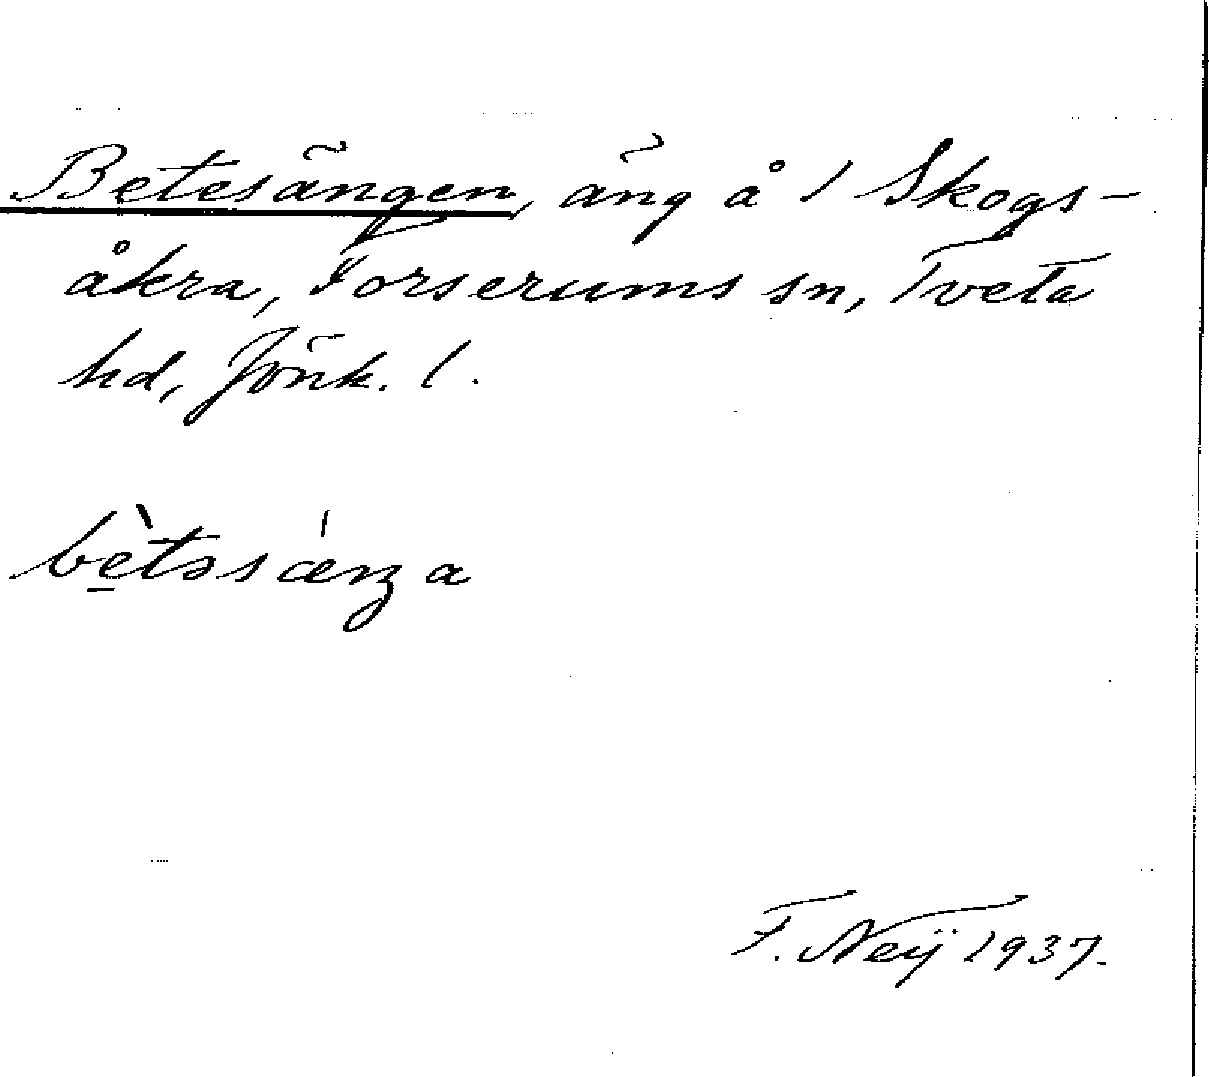 Betesängen, äng å 1 Skogs-
åkra, Forserums sn, Tveta
hd, Jönk. l.
bètəsáŋa
F. Neÿ 1937.